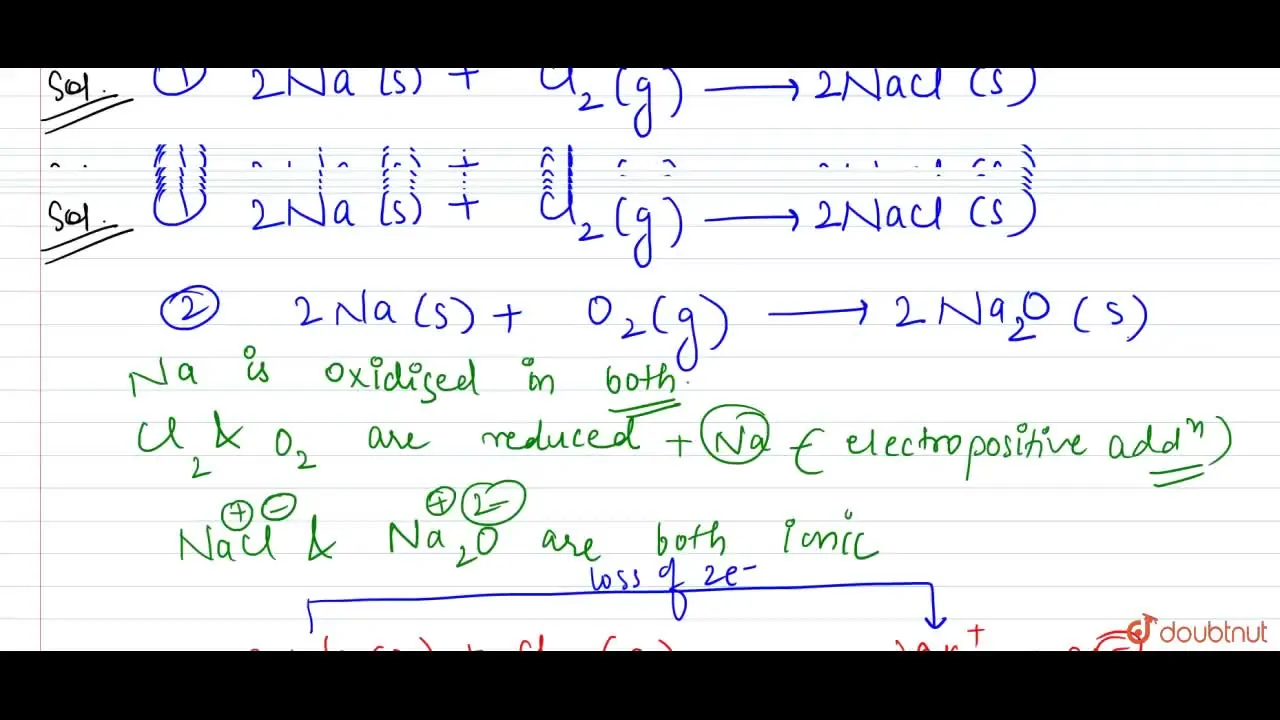 Sol. ① 2Na (s) + Cl₂ (g) ⟶ 2NaCl (s)
Sol. ① 2Na (s) + Cl₂ (g) ⟶ 2NaCl (s)
② 2Na (s) + O₂ (g) ⟶ 2Na₂O (s)
Na is oxidised in both.
Cl₂ & O₂ are reduced + Na (electropositive addⁿ)
⊕ ⊖ ⊕ 2-
NaCl & Na₂O are both ionic
loss of 2e⁻
doubtnut